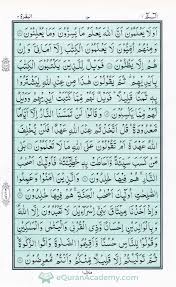 البقرة ٢
١٣
الٓمّٓ ١
اَوَلَا يَعْلَمُوْنَ اَنَّ اللّٰهَ يَعْلَمُ مَا يُسِرُّوْنَ وَمَا يُعْلِنُوْنَ
وَمِنْهُمْ اُمِّيُّوْنَ لَا يَعْلَمُوْنَ الْكِتٰبَ اِلَّآ اَمَانِيَّ وَاِنْ
هُمْ اِلَّا يَظُنُّوْنَ فَوَيْلٌ لِّلَّذِيْنَ يَكْتُبُوْنَ الْكِتٰبَ
بِاَيْدِيْهِمْ ثُمَّ يَقُوْلُوْنَ هٰذَا مِنْ عِنْدِ اللّٰهِ لِيَشْتَرُوْا
بِهٖ ثَمَنًا قَلِيْلًا فَوَيْلٌ لَّهُمْ مِّمَّا كَتَبَتْ اَيْدِيْهِمْ وَوَيْلٌ
لَّهُمْ مِّمَّا يَكْسِبُوْنَ وَقَالُوْا لَنْ تَمَسَّنَا النَّارُ اِلَّآ اَيَّامًا
مَّعْدُوْدَةً قُلْ اَتَّخَذْتُمْ عِنْدَ اللّٰهِ عَهْدًا فَلَنْ يُّخْلِفَ
اللّٰهُ عَهْدَهٗٓ اَمْ تَقُوْلُوْنَ عَلَى اللّٰهِ مَا لَا تَعْلَمُوْنَ بَلٰى
مَنْ كَسَبَ سَيِّئَةً وَّاَحَاطَتْ بِهٖ خَطِيْٓئَتُهٗ فَاُولٰٓئِكَ
اَصْحٰبُ النَّارِ هُمْ فِيْهَا خٰلِدُوْنَ وَالَّذِيْنَ اٰمَنُوْا وَعَمِلُوا
الصّٰلِحٰتِ اُولٰٓئِكَ اَصْحٰبُ الْجَنَّةِ هُمْ فِيْهَا خٰلِدُوْنَ
وَاِذْ اَخَذْنَا مِيْثَاقَ بَنِيْٓ اِسْرَآءِيْلَ لَا تَعْبُدُوْنَ اِلَّا اللّٰهَ
وَبِالْوَالِدَيْنِ اِحْسَانًا وَّذِي الْقُرْبٰى وَالْيَتٰمٰى وَالْمَسٰكِيْنِ
وَقُوْلُوْا لِلنَّاسِ حُسْنًا وَّاَقِيْمُوا الصَّلٰوةَ وَاٰتُوا الزَّكٰوةَ
ثُمَّ تَوَلَّيْتُمْ اِلَّا قَلِيْلًا مِّنْكُمْ وَاَنْتُمْ مُّعْرِضُوْنَ
eQuranAcademy.com